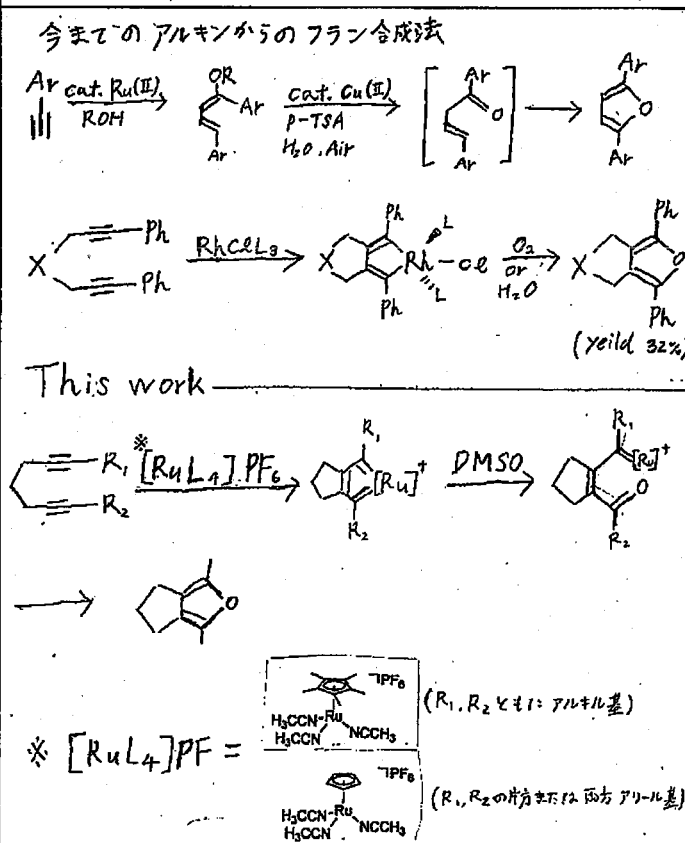 今までのアルキンからのフラン合成法
Ar
cat. Ru(II)
ROH
OR
Ar
Ar
cat. Cu(II)
P-TSA
H2O, Air
Ar
O
Ar
Ar
O
Ar
X
Ph
Ph
RhClL3
X
Ph
Rh
L
Cl
L
Ph
O2
or
H2O
X
Ph
O
Ph
(yeild 32%)
This work
R1
R2
※
[RuL4]PF6
R1
[Ru]+
R2
DMSO
R1
[Ru]+
O
R2
O
※ [RuL4]PF =
PF6
Ru
H3CCN
H3CCN
NCCH3
(R1, R2 ともに アルキル基)
PF6
Ru
H3CCN
H3CCN
NCCH3
(R1, R2の片方または両方 アリール基)